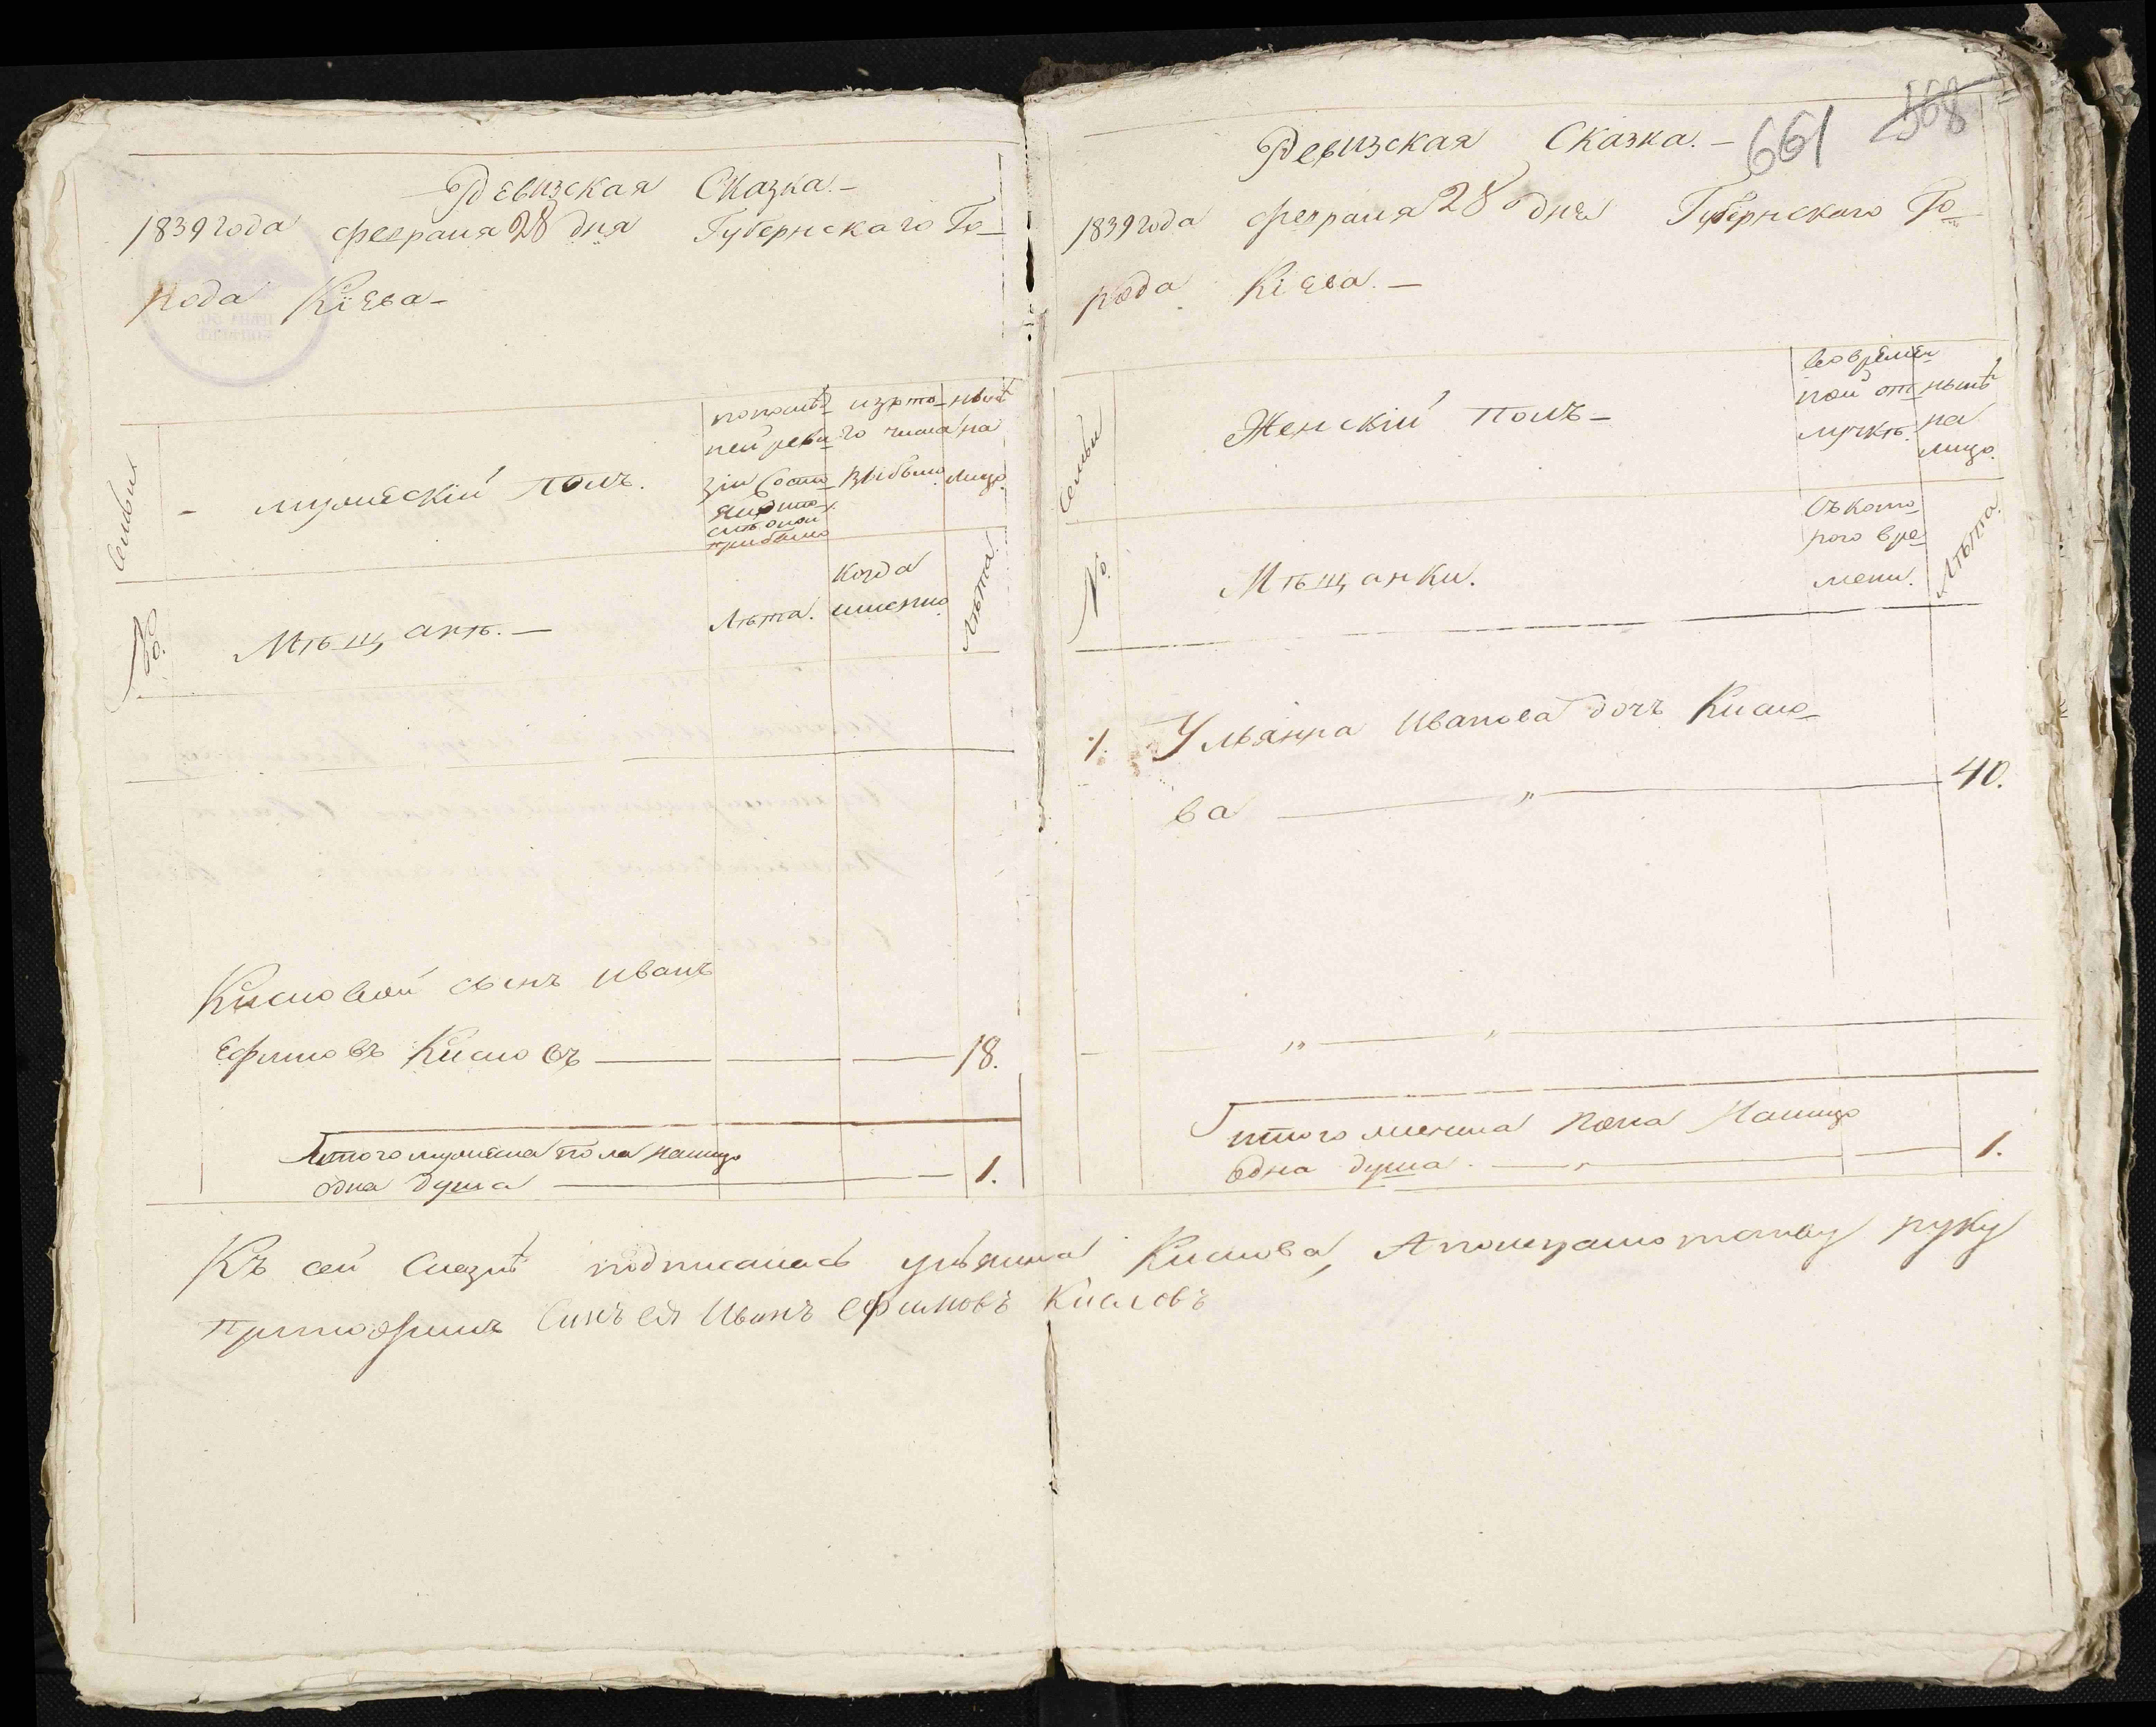 Ревизская Сказка.-
1839 года февраля 28 дня Губернскаго Го-
рода Кіева-
Семьи
- мужескій полъ.
по послѣд-
ней реви-
зіи состо-
яло и по-
слѣ оной
прибыло
изъ то-
го числа
выбыло.
нынѣ
на
лицо.
№
Мѣщанъ.-
Лѣта.
Когда
именно.
Лѣта.
Кисловой сынъ Иванъ
Ефимовъ Кисловъ 18.
Итого мужеска пола налицо
одна душа 1.
661 568
Ревизская Сказка.-
1839 года февраля 28 дня Губернскаго Го-
рода Кіева.-
Семьи
Женскій полъ-
во времен-
ной от-
лучкѣ.
нынѣ
на
лицо.
№
Мѣщанки.
Съ кото-
рого вре-
мени.
Лѣта.
1. Ульянна Иванова дочь Кисло-
ва „ 40.
„ „
Итого женска пола Налицо
одна душа. 1.
Къ сей сказкѣ подписалась Кислова, А руку
приложилъ Синъ ея Иванъ Ефимовъ Кисловъ